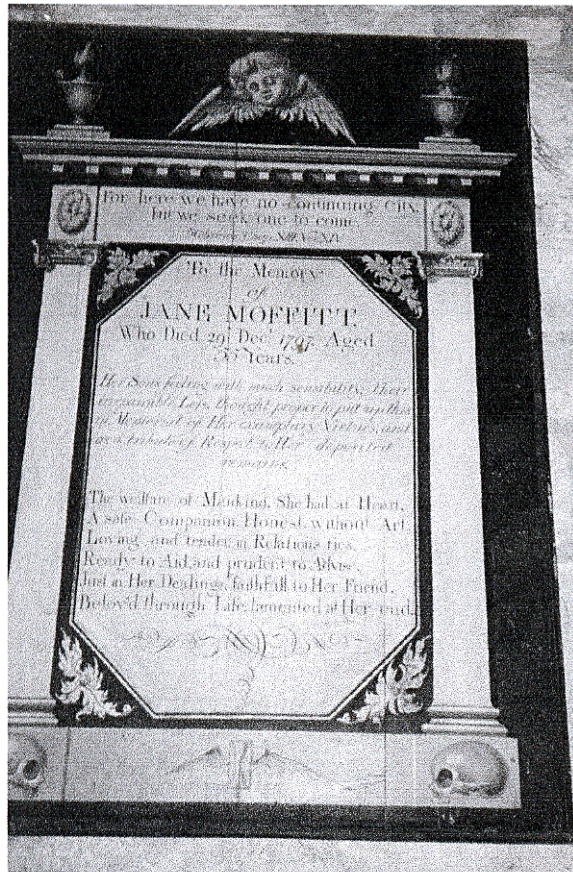 For here we have no continuing City,
but we seek one to come.
To the Memory
of
JANE MOFFITT.
Who Died 29 Dec. 1797. Aged
Years.
Her Sons feeling with much sensibility, Their
Loss, thought proper to put up this
Memorial of Her exemplary Virtues, and
as a tribute of Respect to Her deposited
remains.
The welfare of Mankind, She had at Heart,
A safe Companion, Honest, without Art,
Loving and tender in Relations ties,
Ready to Aid, and prudent to Advise,
Just in Her Dealings, faithfull to Her Friend,
Belov'd through Life, lamented at Her end.